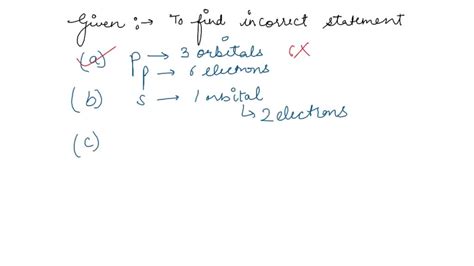 Given :→ To find incorrect statement
(a) p → 3 orbitals 6X
p → 6 electrons
(b) s → 1 orbital
↳ 2 electrons
(c)